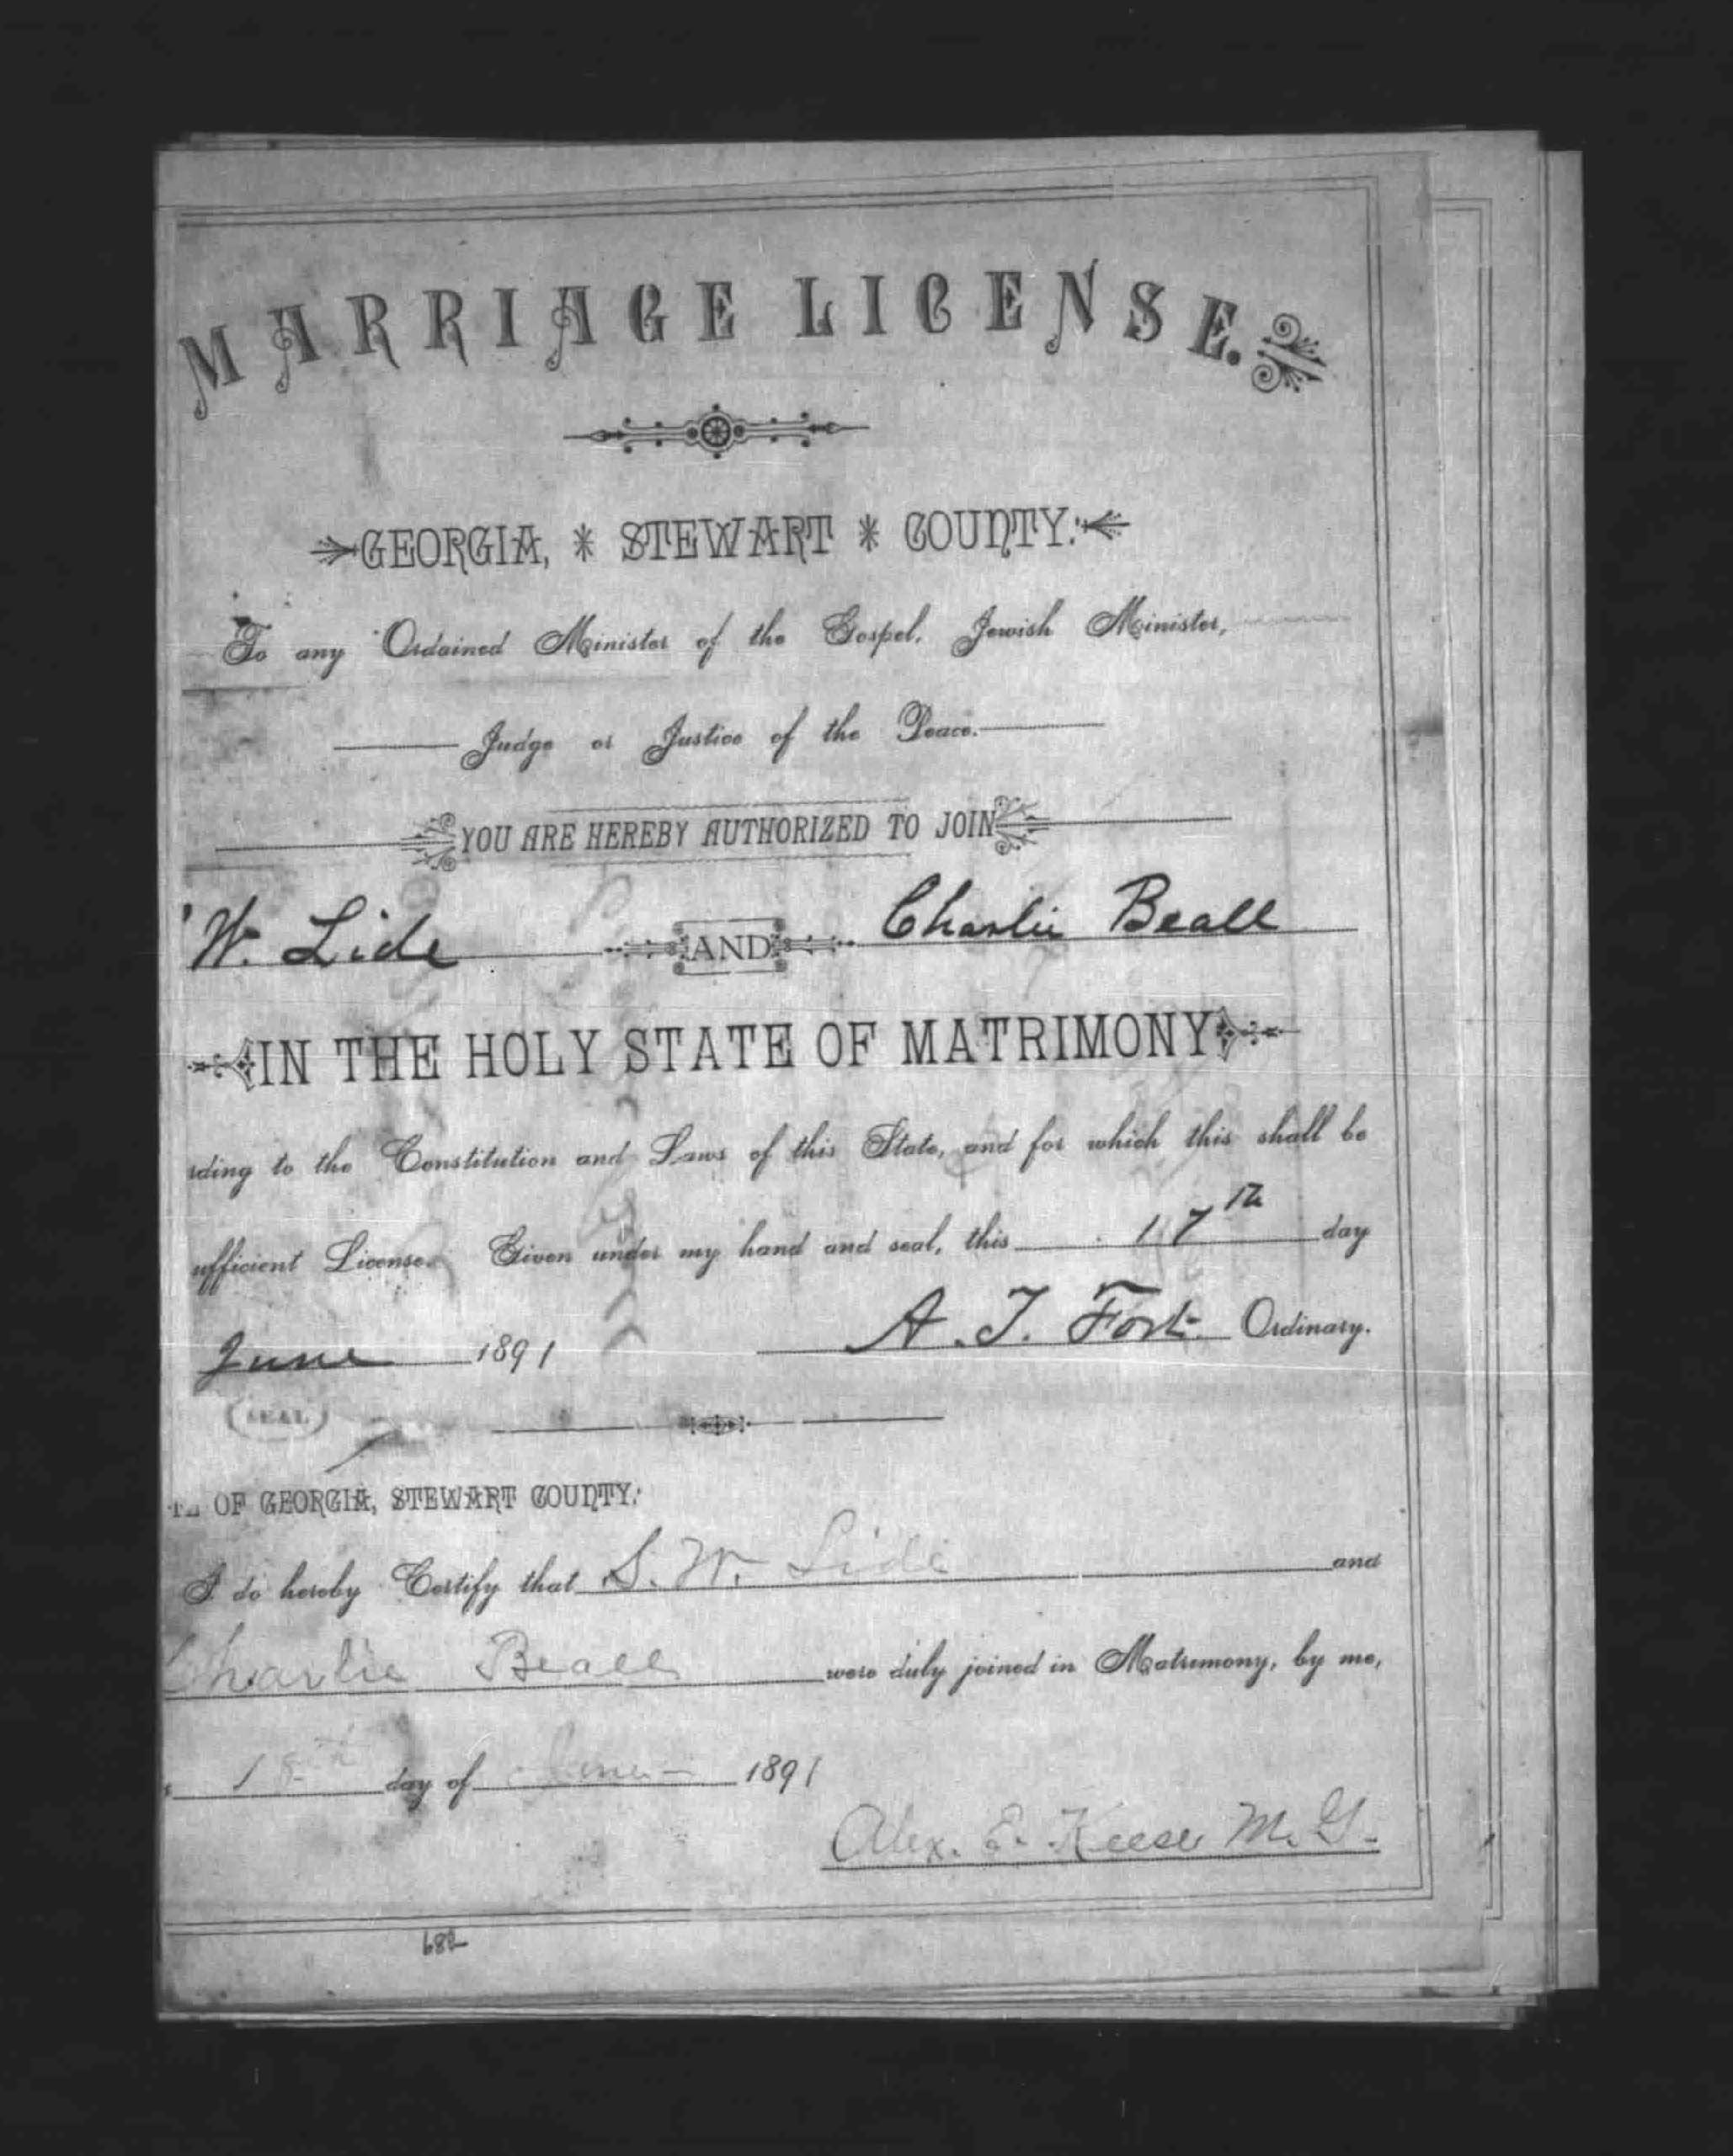 MARRIAGE LICENSE.
GEORGIA, * STEWART * COUNTY:
To any Ordained Minister of the Gospel, Jewish Minister,
Judge or Justice of the Peace.
YOU ARE HEREBY AUTHORIZED TO JOIN
W. Lide AND Charlie Beall
IN THE HOLY STATE OF MATRIMONY
rding to the Constitution and Laws of this State, and for which this shall be
ufficient License. Given under my hand and seal, this 17th day
June 1891 A. T. Fort Ordinary.
(SEAL)
OF GEORGIA, STEWART COUNTY:
I do hereby Certify that S. W. Lide and
Charlie Beall were duly joined in Matrimony, by me,
18th day of June 1891
Alex. E. Keese M. G.